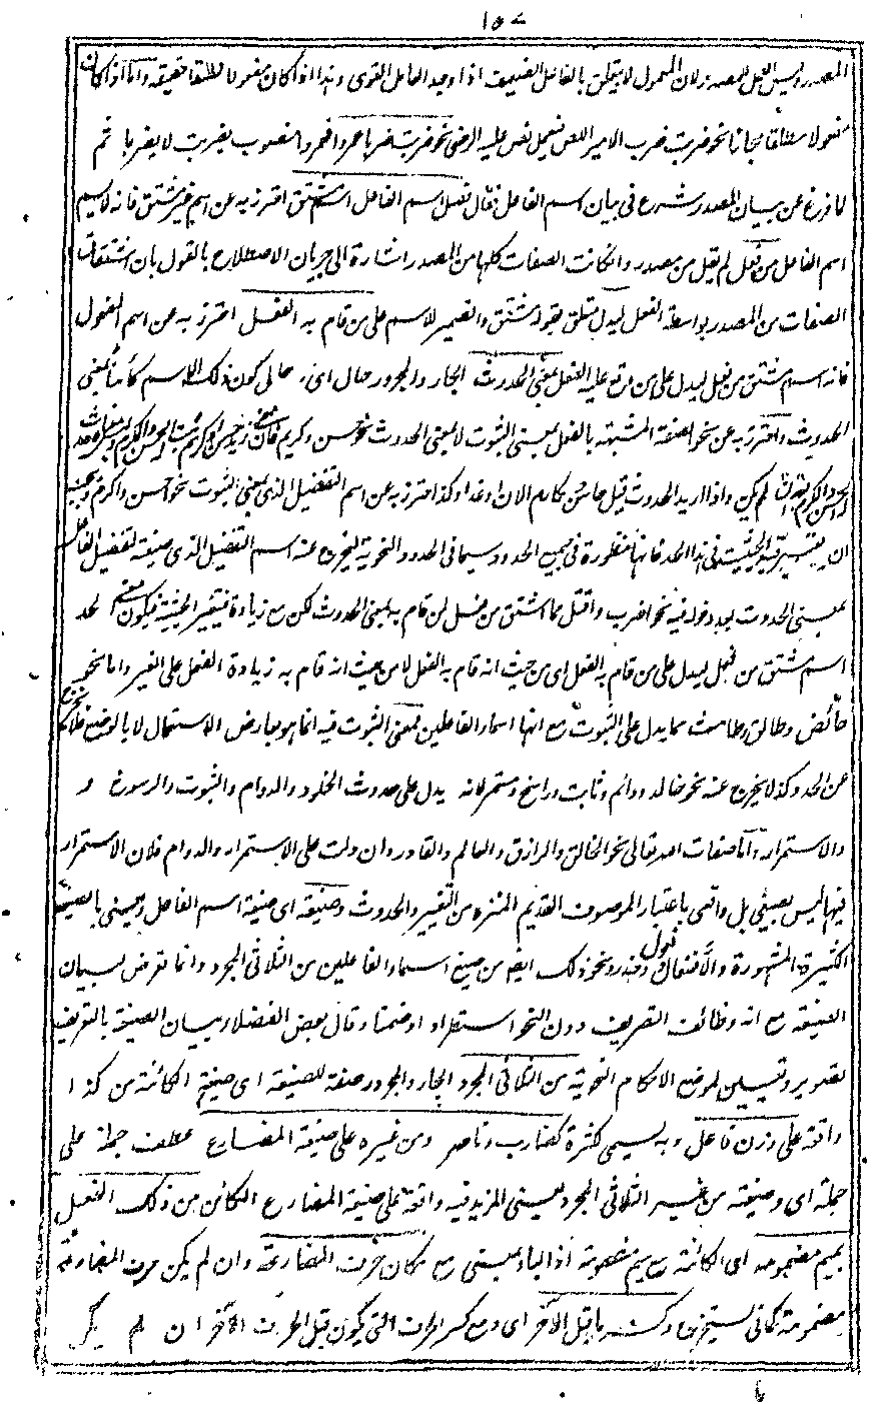 ١٥٧
المصدر وليس الفعل للمصدر ولان المعمول لا يتعلق بالفاعل الضعيف اذا وجد العامل القوى وهذا اذا كان مفعولا مطلقا حقيقة واما اذا كان
مفعولا مطلقا مجازا نحو ضربت ضرب الامير اللص فيعمل نص عليه الرضى نحو ضربت ضربا عمروا فعمروا منصوب بضربت لا بضربا ثم
لما فرغ عن بيان المصدر شرع فى بيان اسم الفاعل فقال فصل اسم الفاعل اسم مشتق احترز به عن اسم غير مشتق فانه لا يسمى
اسم الفاعل من فعل لم يقل من مصدر وان كانت الصفات كلها من المصدر اشارة الى جريان الاصطلاح بالقول بان اشتقاق
الصفات من المصدر بواسطة الفعل ليدل متعلق بقوله مشتق والضمير للاسم على من قام به الفعل احترز به عن اسم المفعول
فانه اسم مشتق من فعل ليدل على من وقع عليه الفعل بمعنى الحدوث الجار والمجرور حال اى حال كون ذلك الاسم كائنا بمعنى
الحدوث واحترز به عن نحو الصفة المشبهة بالفعل بمعنى الثبوت لا بمعنى الحدوث نحو حسن وكريم فان معنى زيد حسن وكريم ثبت الحسن والكرم
لم يكن واذا اريد الحدوث قيل حاسن كارم الان او غدا وكذا احترز به عن اسم التفضيل الذى بمعنى الثبوت نحو احسن واكرم ويجب
ان يعتبر قيد الحيثية فى هذا الحد فانها منظورة فى جميع الحدود سيما فى الحدود النحوية ليخرج عنه اسم التفضيل الذى صيغة لتفضيل الفاعل
بمعنى الحدوث بعد دخوله فيه نحو اضرب واقتل مما اشتق من فعل لمن قام به بمعنى الحدوث لكن مع زيادة فيتغير الحيثية فيكون معنى الحد
اسم مشتق من فعل ليدل على من قام به الفعل اى من حيث انه قام به الفعل لا من حيث انه قام به زيادة الفعل على الغير واما نحو
حائض وطالق وطامث مما يدل على الثبوت مع انها اسماء الفاعلين بمعنى الثبوت فيه انما هو بعارض الاستعمال لا بالوضع فلا يخرج
عن الحد وكذا لا يخرج عنه نحو خالد ودائم وثابت وراسخ ومستمر لانه يدل على حدوث الخلود والدوام والثبوت والرسوخ و
والاستمرار واما صفات الله تعالى نحو الخالق والرازق والعالم والقادر وان دلت على الاستمرار والدوام فلان الاستمرار
فيها ليس بصيغى بل واقعى باعتبار الموصوف القديم المنزه من التغير والحدوث وصيغته اى صيغة اسم الفاعل ويعنى بالصيغة
الكثيرة المشهورة ونحو ذلك ايضا من صيغ اسماء الفاعلين من الثلاثى المجرد وانما تعرض لبيان
الصيغة مع انه وظائف التصريف دون النحو استطرادا وضمنا وقال بعض الفضلاء بيان الصيغة بالتعريف
تصوير وتعيين لموضع الاحكام النحوية من الثلاثى المجرد الجار والمجرور صفة للصيغة اى صيغة الكائنة من كذا
واقعة على وزن فاعل وبه يسمى لكثرة كضارب وناصر ومن غيره على صيغة المضارع عطف جملة على
جملة اى وصيغته من غير الثلاثى المجرد يعنى المزيد فيه واقعة على صيغة المضارع الكائن من ذلك الفعل
بميم مضمومة اى الكائنة مع ميم مضمومة اذ الباء بمعنى مع مكان حرف المضارعة وان لم يكن حرف المضارعة
مضمومة كما فى يستخرج وكسر ما قبل الآخر اى ومع كسر الحرف التى يكون قبل الحرف الآخر ان لم يكن